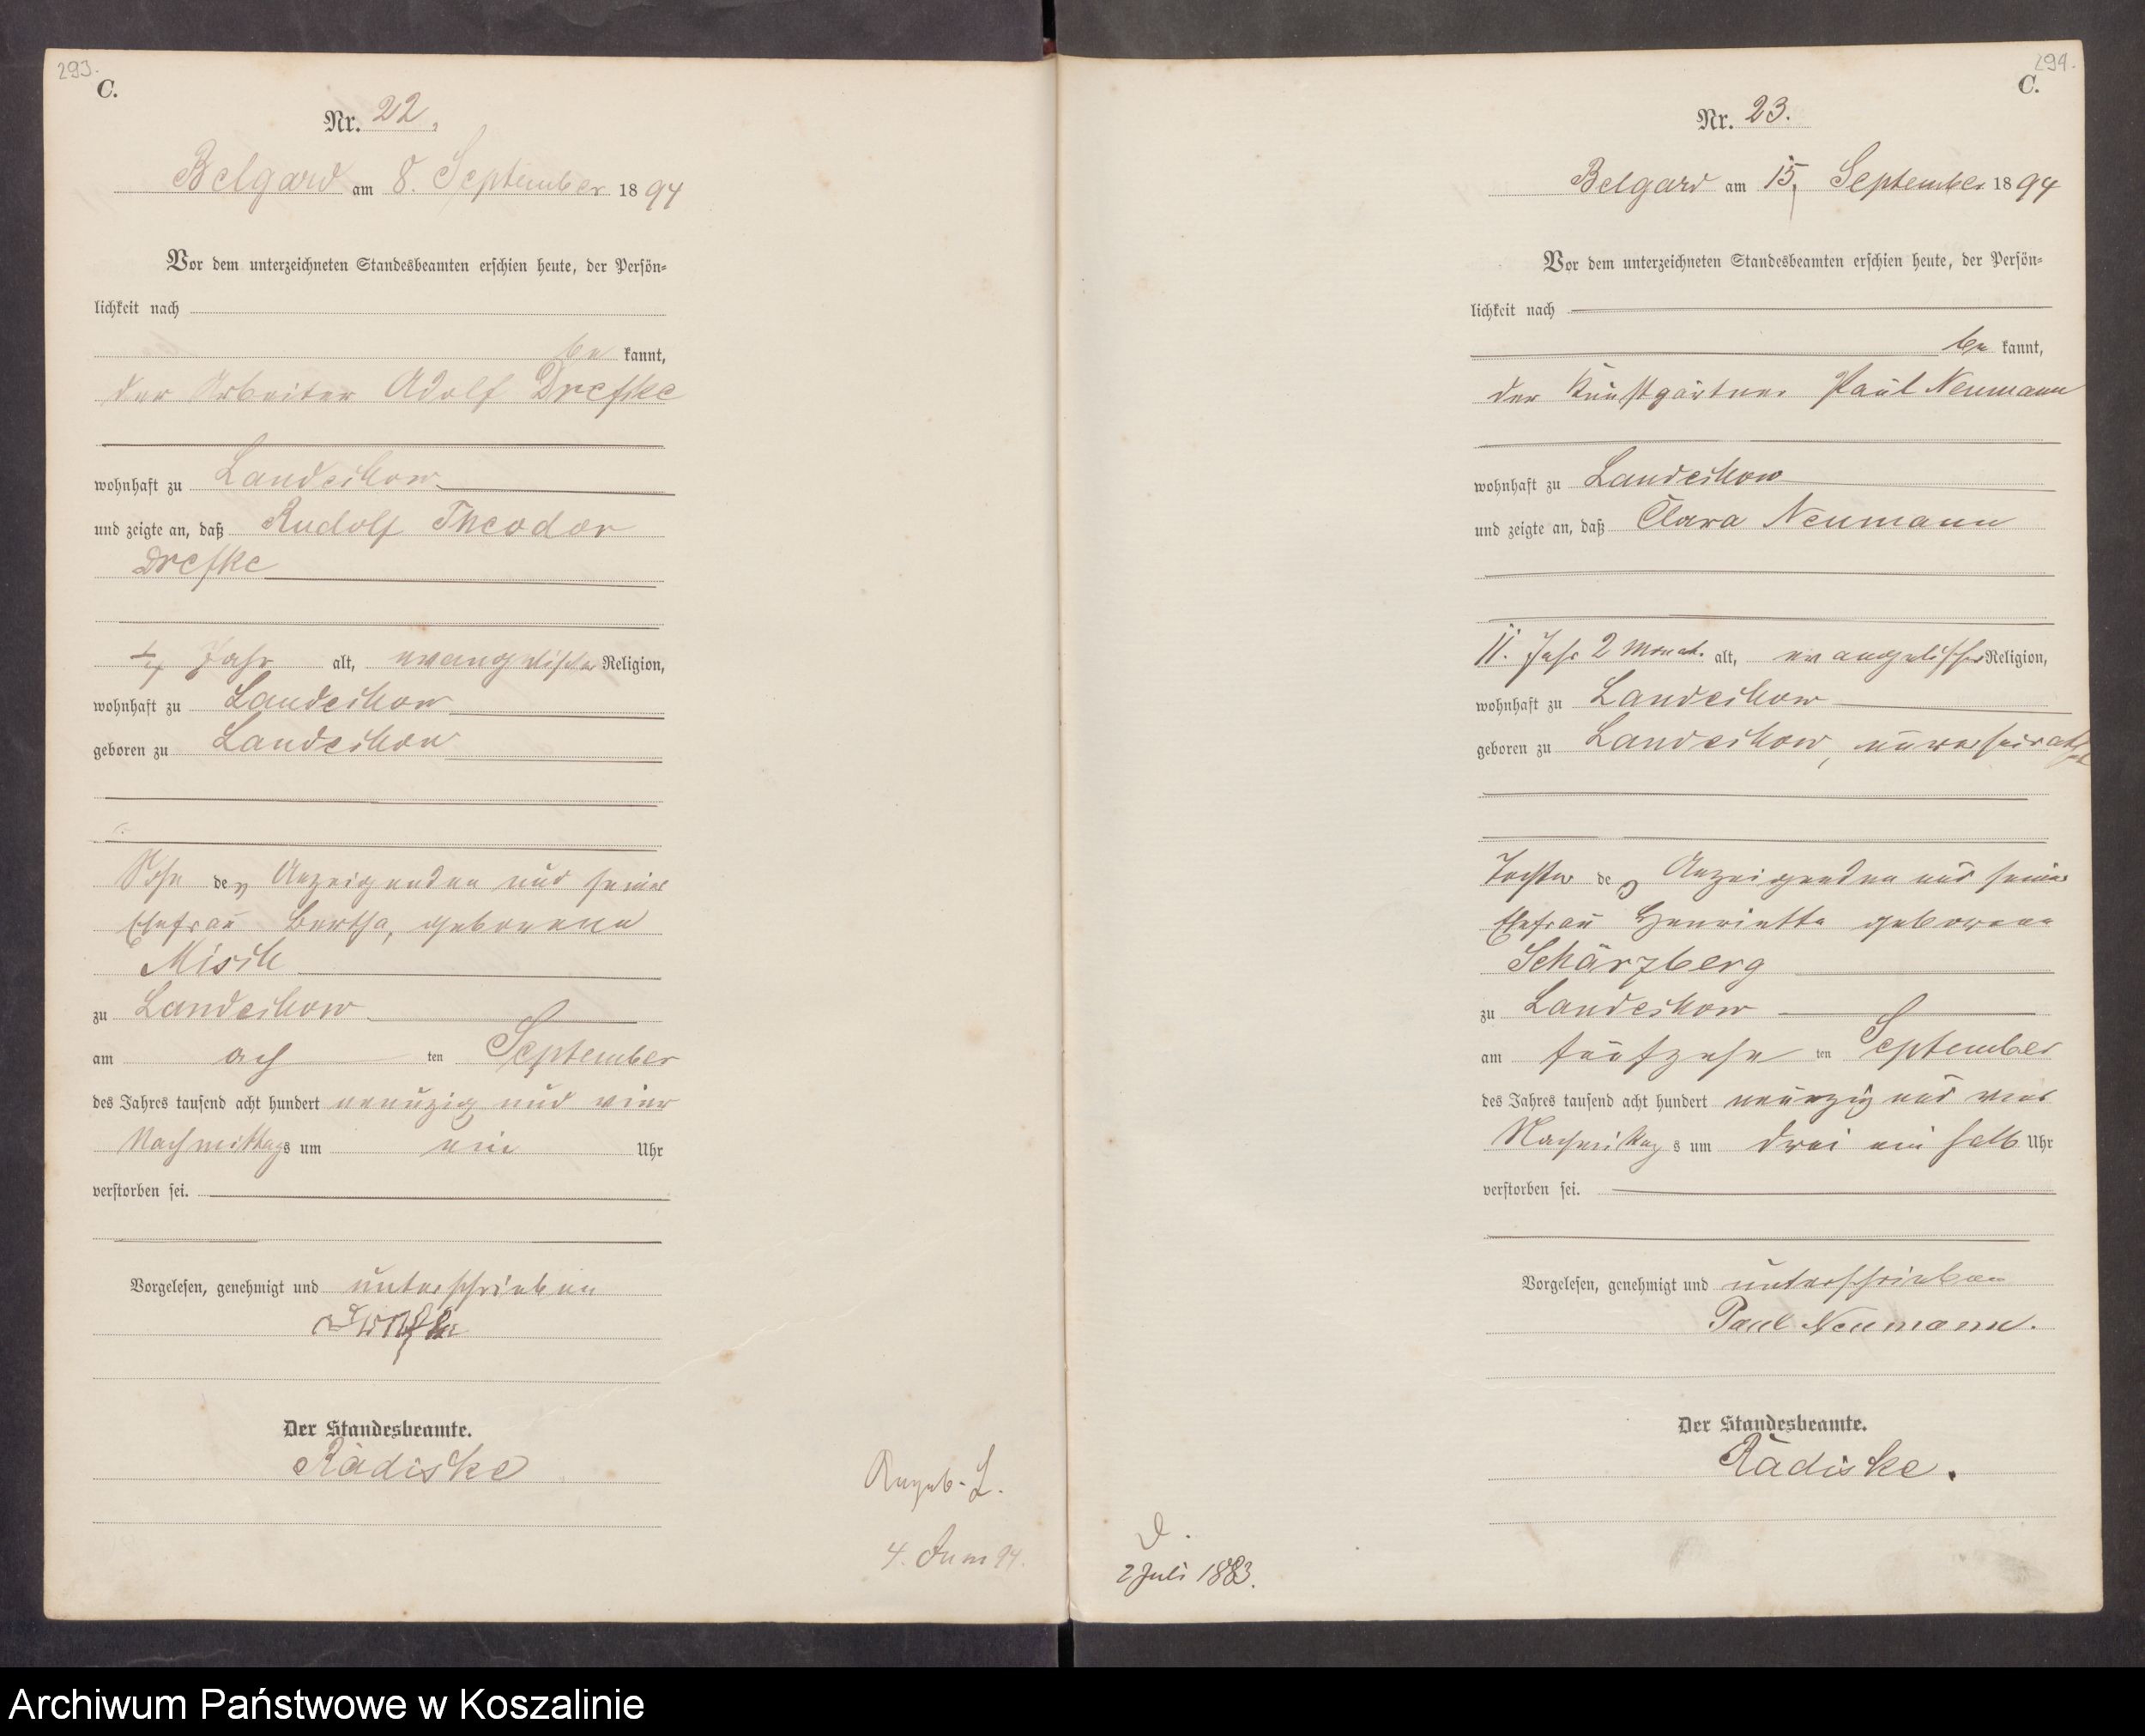 293.
C.
Nr. 22.
Belgard am 8. September 1894
Vor dem unterzeichneten Standesbeamten erschien heute, der Persön-
lichkeit nach
be kannt,
der Arbeiter Adolf Drefke
wohnhaft zu Landechow
und zeigte an, daß Rudolf Theodor
Drefke
1/4 Jahr alt, evangelischer Religion,
wohnhaft zu Landechow
geboren zu Landechow
Sohn des Anzeigenden und seiner
Ehefrau Bertha, geborene
Misch
zu Landechow
am ach ten September
des Jahres tausend acht hundert neunzig und vier
Nachmittags um ein Uhr
verstorben sei.
Vorgelesen, genehmigt und unterschrieben
Der Standesbeamte.
Rädiske
4. Juni 94.
294.
C.
Nr. 23.
Belgard am 15. September 1894
Vor dem unterzeichneten Standesbeamten erschien heute, der Persön-
lichkeit nach
be kannt,
der Kunstgärtner Paul Neumann
wohnhaft zu Landechow
und zeigte an, daß Clara Neumann
11. Jahr 2 Monat. alt, evangelischer Religion,
wohnhaft zu Landechow
geboren zu Landechow, unverheirathet
Tochter des Anzeigenden und seiner
Ehefrau Henriette geborene
Schärzberg
zu Landechow
am fünfzehn ten September
des Jahres tausend acht hundert neunzig und vier
Nachmittags um drei ein halb Uhr
verstorben sei.
Vorgelesen, genehmigt und unterschrieben
Paul Neumann.
Der Standesbeamte.
Rädiske.
2 Juli 1883.
Archiwum Państwowe w Koszalinie